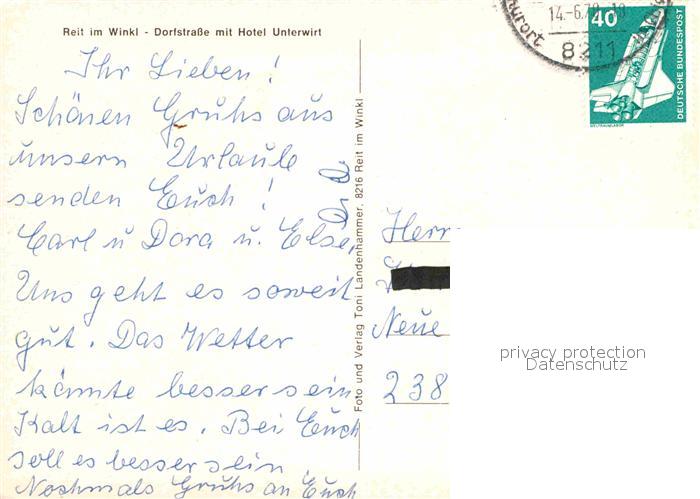 Reit im Winkl - Dorfstraße mit Hotel Unterwirt
Ihr Lieben!
Schönen Gruhs aus
unsern Urlaub
senden Euch!
Carl u Dora u. Else,
Uns geht es soweit
gut. Das Wetter
könnte besser sein
Kalt ist es. Bei Euch
soll es besser sein
Nochmals Gruhs an Euch
Foto und Verlag Toni Landenhammer, 8216 Reit im Winkl
14.-6.79-18
8211
40
DEUTSCHE BUNDESPOST
WELTRAUMLABOR
Herr
Neue
238
privacy protection
Datenschutz